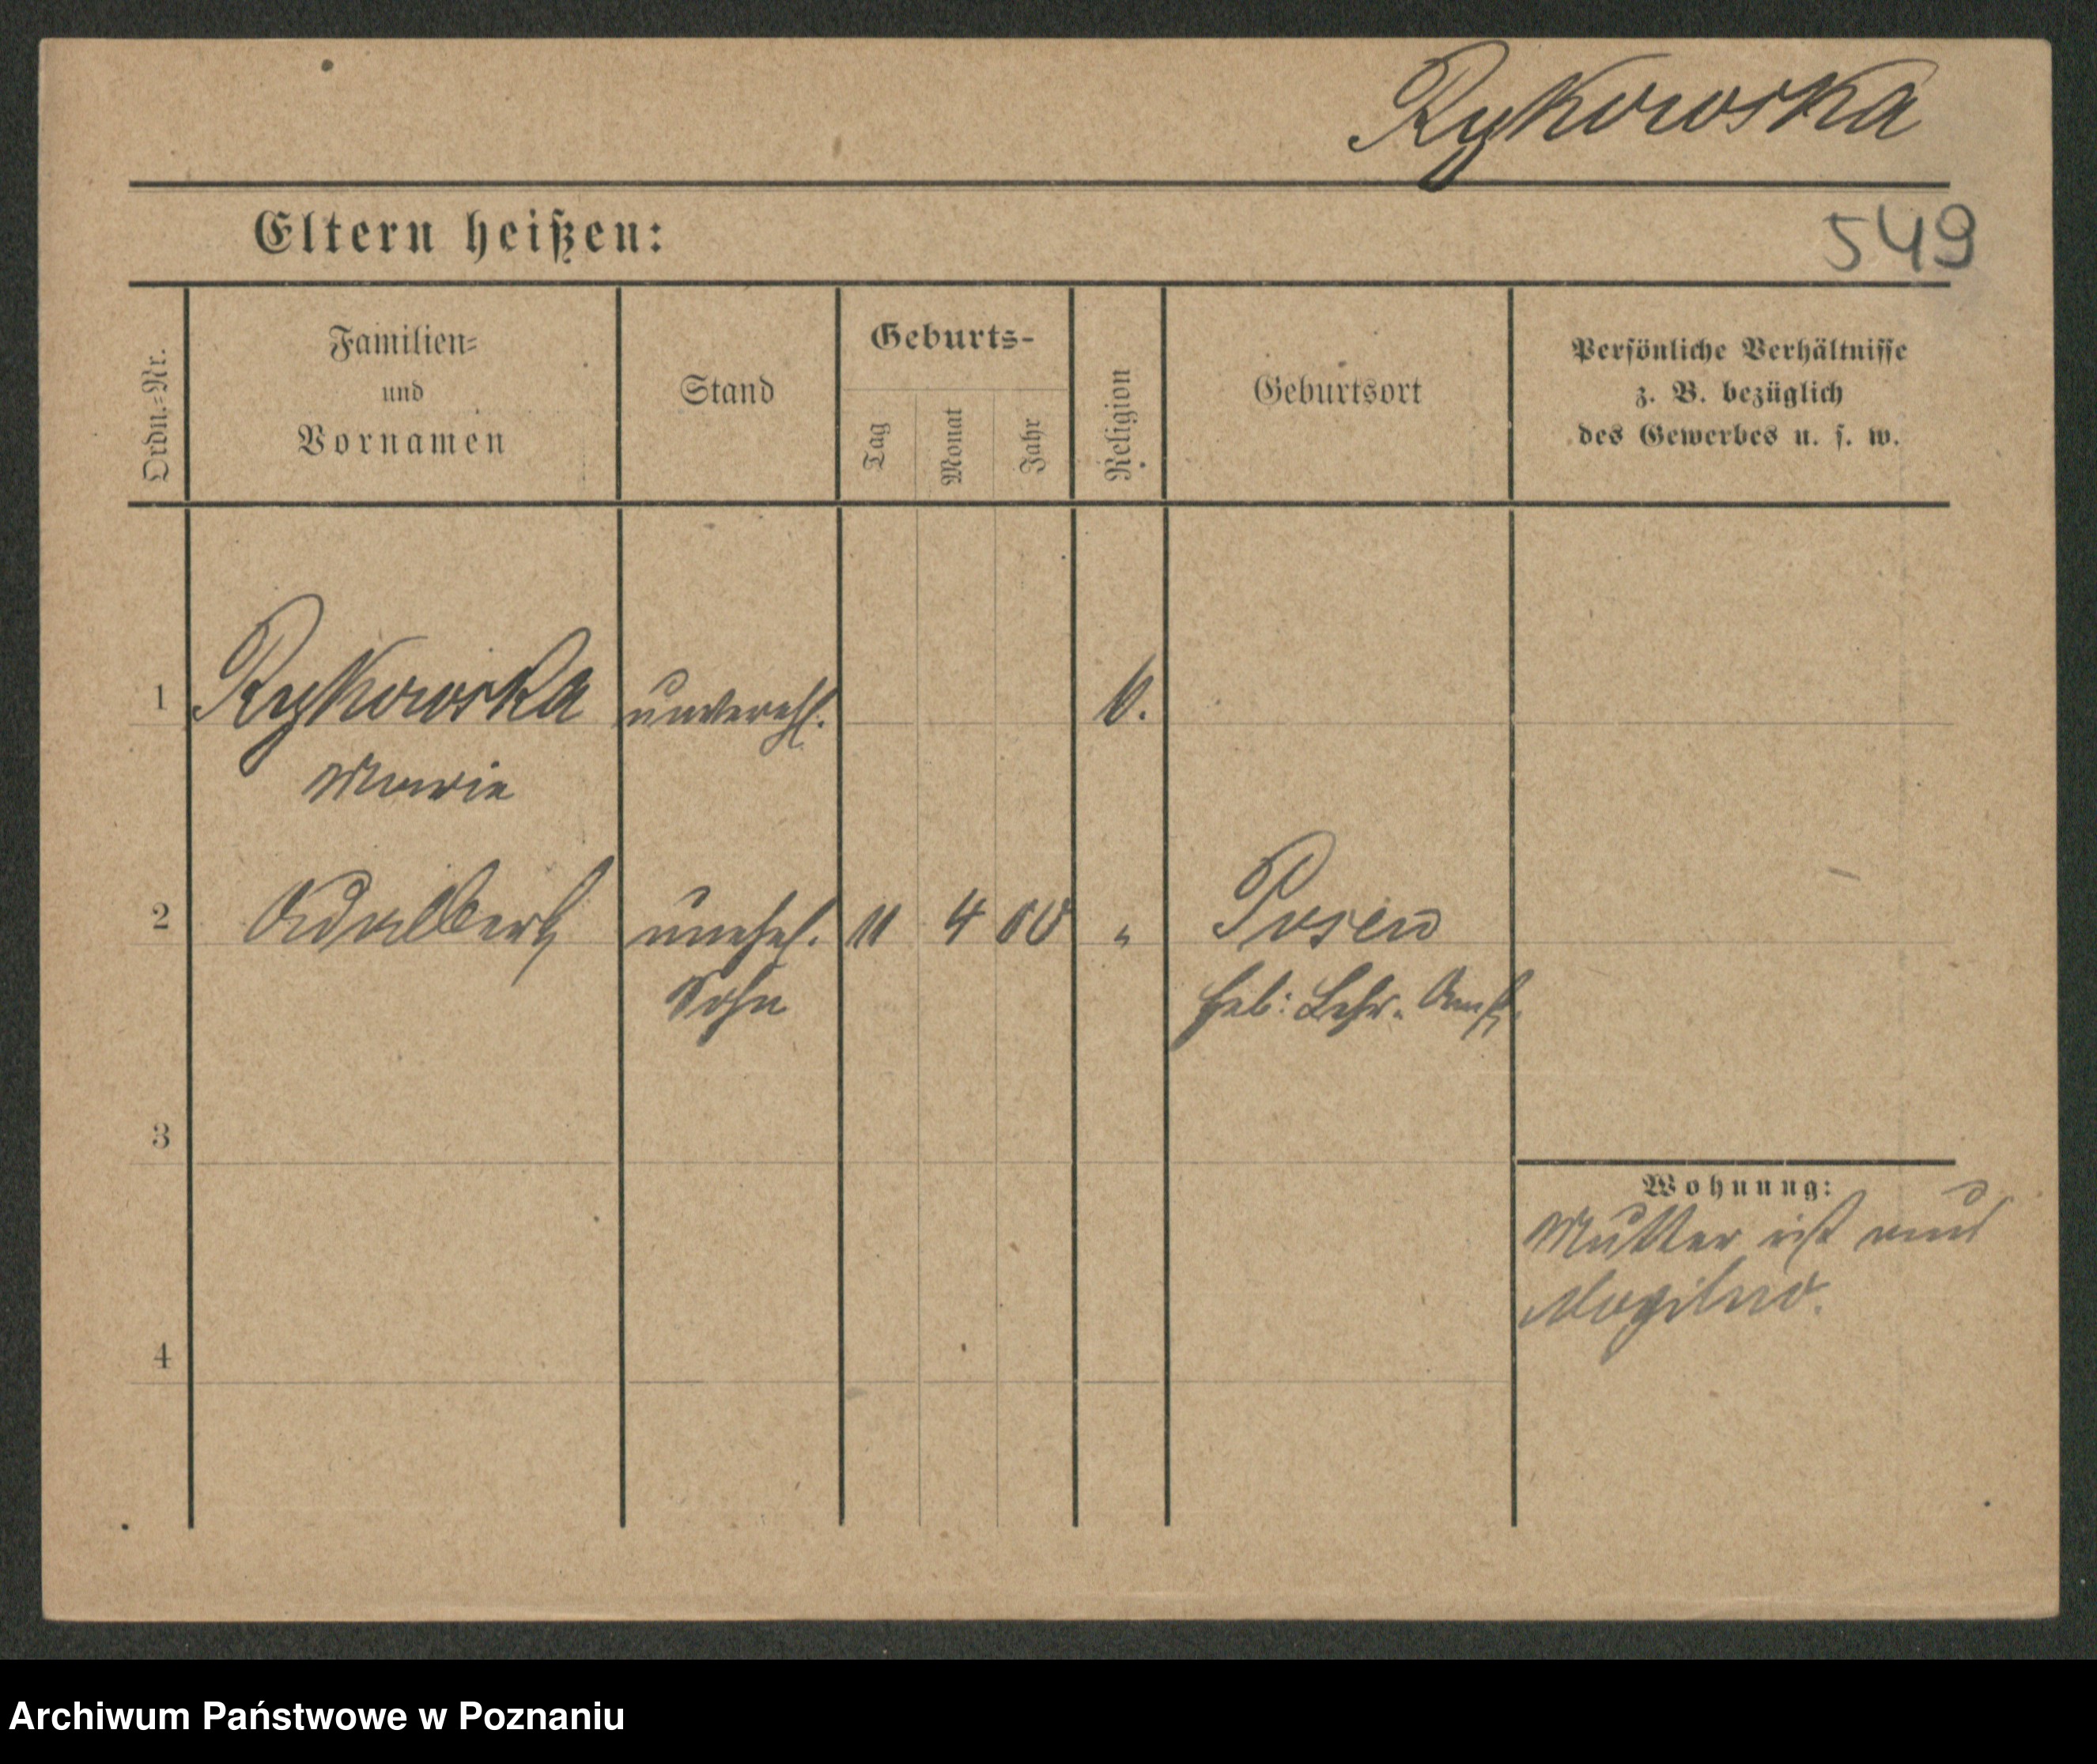 Rykowska
Eltern heißen:
549
Ordn.-Nr.
Familien-
und
Vornamen
Stand
Geburts-
Tag
Monat
Jahr
Religion
Geburtsort
Persönliche Verhältnisse
z. B. bezüglich
des Gewerbes u. s. w.
1 Rykowska unverehl.
Marie
2 Adalbert unehel. 11 4 " Posen
Sohn
Heb: Lehr-Anst.
3
Wohnung:
Mutter ist aus
Mogilno.
4
Archiwum Państwowe w Poznaniu